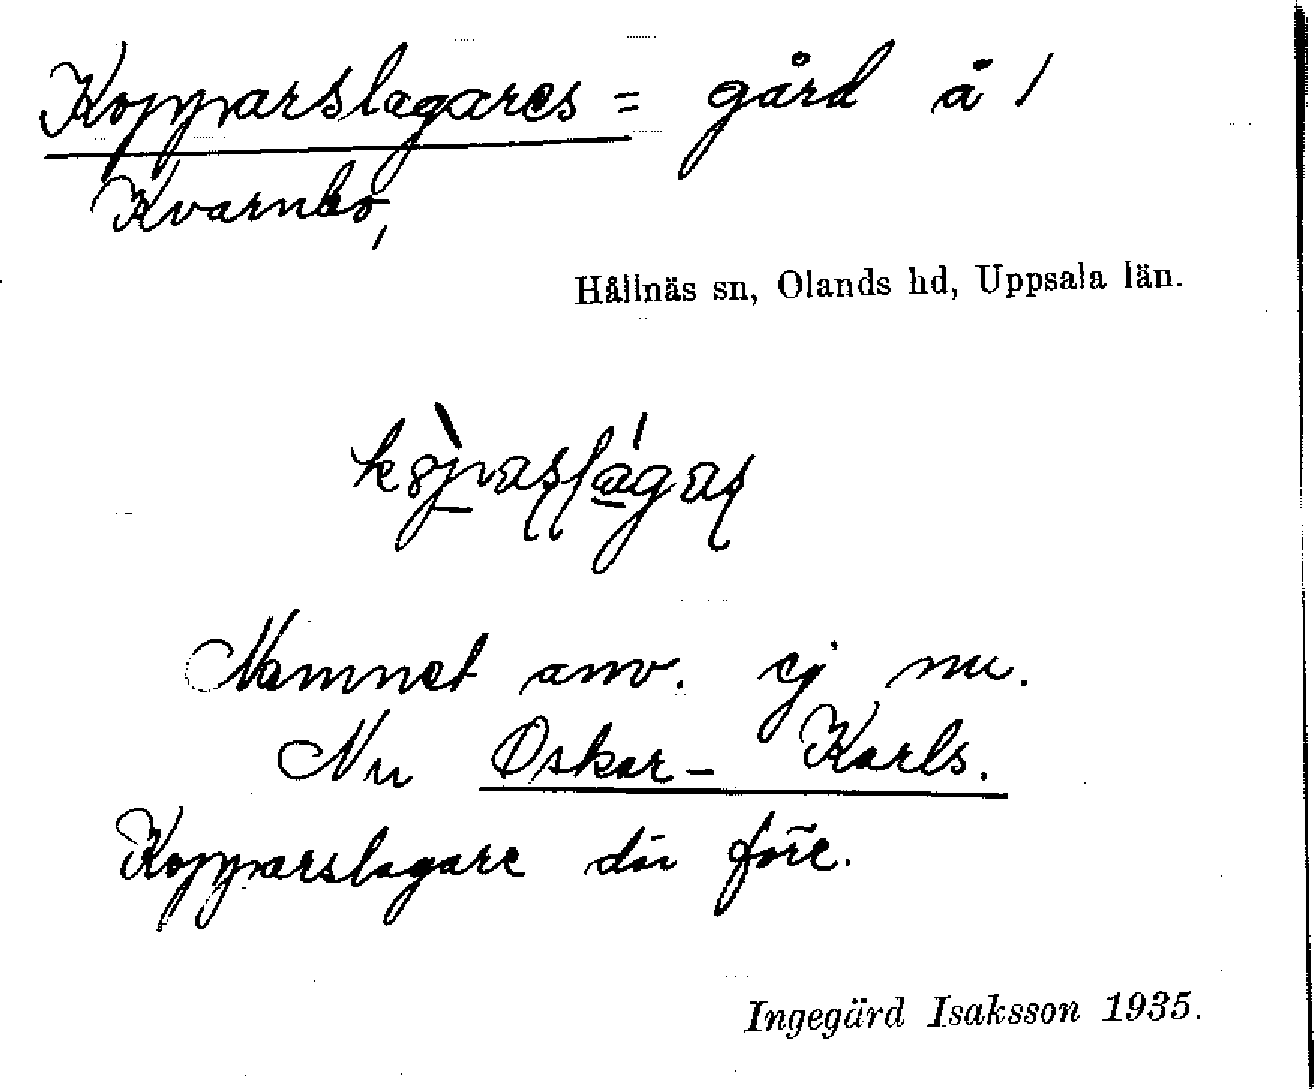 Kopparslagares = gård å 1
Kvarnbo,
Hållnäs sn, Olands hd, Uppsala län.
Namnet anv. ej nu.
Nu Oskar- Karls.
Kopparslagare där före.
Ingegärd Isaksson 1935.